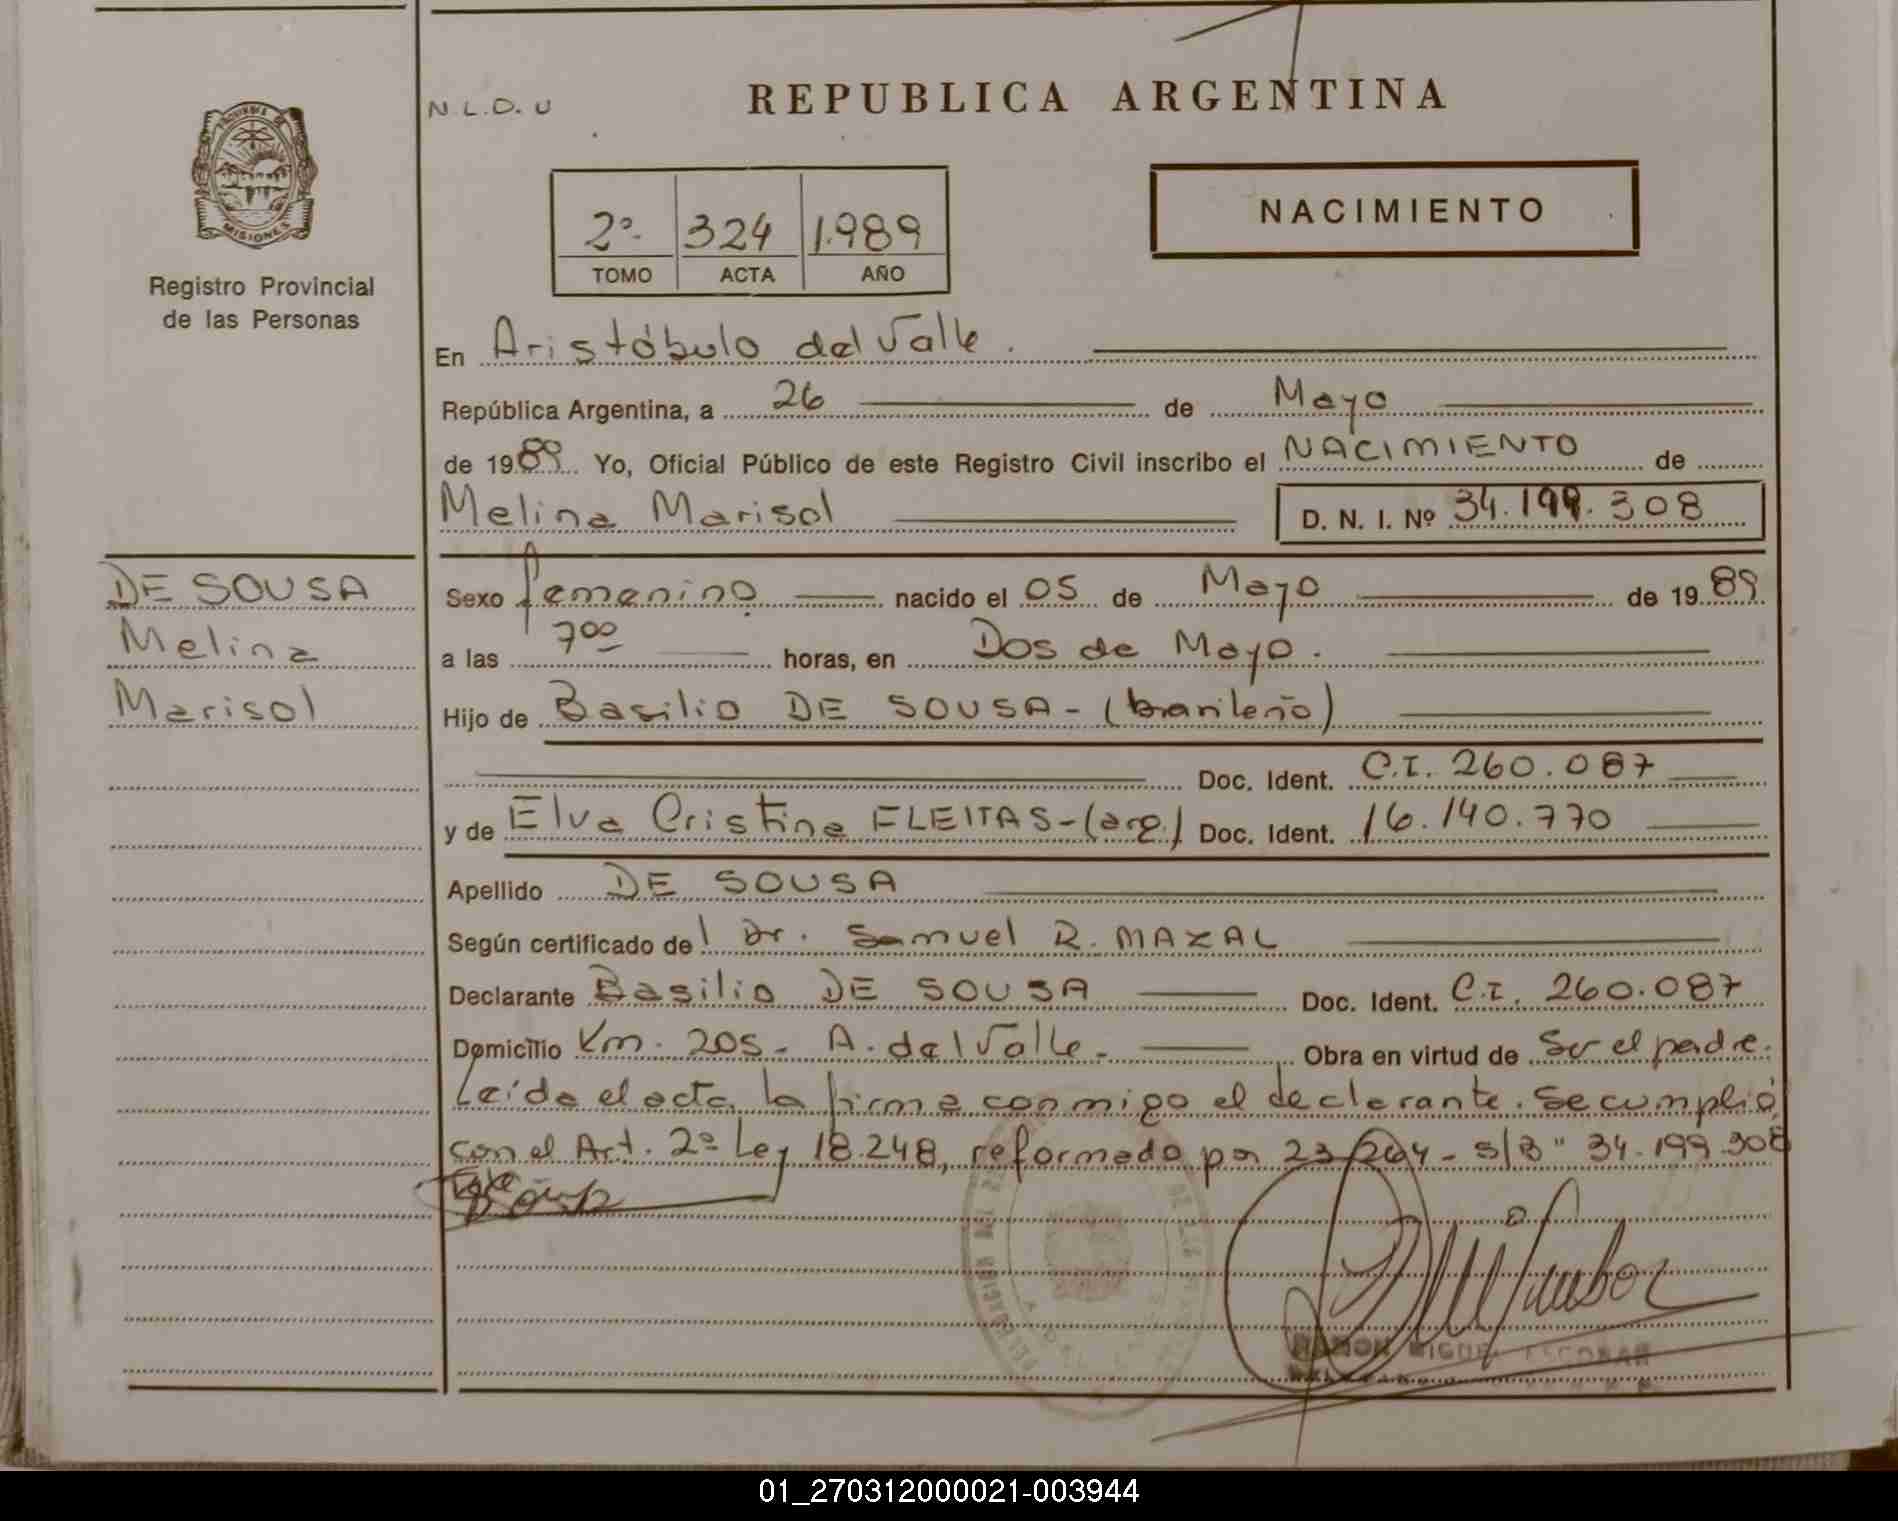 N.L.D.U
REPUBLICA ARGENTINA
PROVINCIA DE
MISIONES
Registro Provincial
de las Personas
2º 324 1.989
TOMO ACTA AÑO
NACIMIENTO
En Aristóbulo del Valle.
República Argentina, a 26 de Mayo
de 1989 Yo, Oficial Público de este Registro Civil inscribo el NACIMIENTO de
Melina Marisol D. N. I. Nº 34.199.308
DE SOUSA
Melina
Marisol
Sexo femenino nacido el 05 de Mayo de 1989
a las 7 00 horas, en Dos de Mayo.
Hijo de Basilio DE SOUSA - (brasileño)
Doc. Ident. C.I. 260.087
y de Elva Cristina FLEITAS - (arg.) Doc. Ident. 16.140.770
Apellido DE SOUSA
Según certificado de l Dr. Samuel R. MAZAL
Declarante Basilio DE SOUSA Doc. Ident. C.I. 260.087
Domicilio Km. 205 - A. del Valle - Obra en virtud de Ser el padre.
Leída el acta, la firma conmigo el declarante. Se cumplió
con el Art. 2º Ley 18.248, reformado por 23.264 - s/B " 34.199.308
RAMON MIGUEL ESCOBAR
01_270312000021-003944